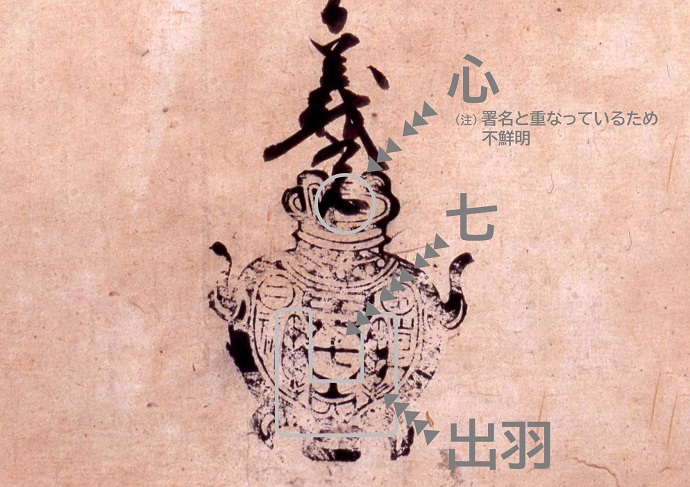 義
心
（注）署名と重なっているため
不鮮明
七
七
出羽